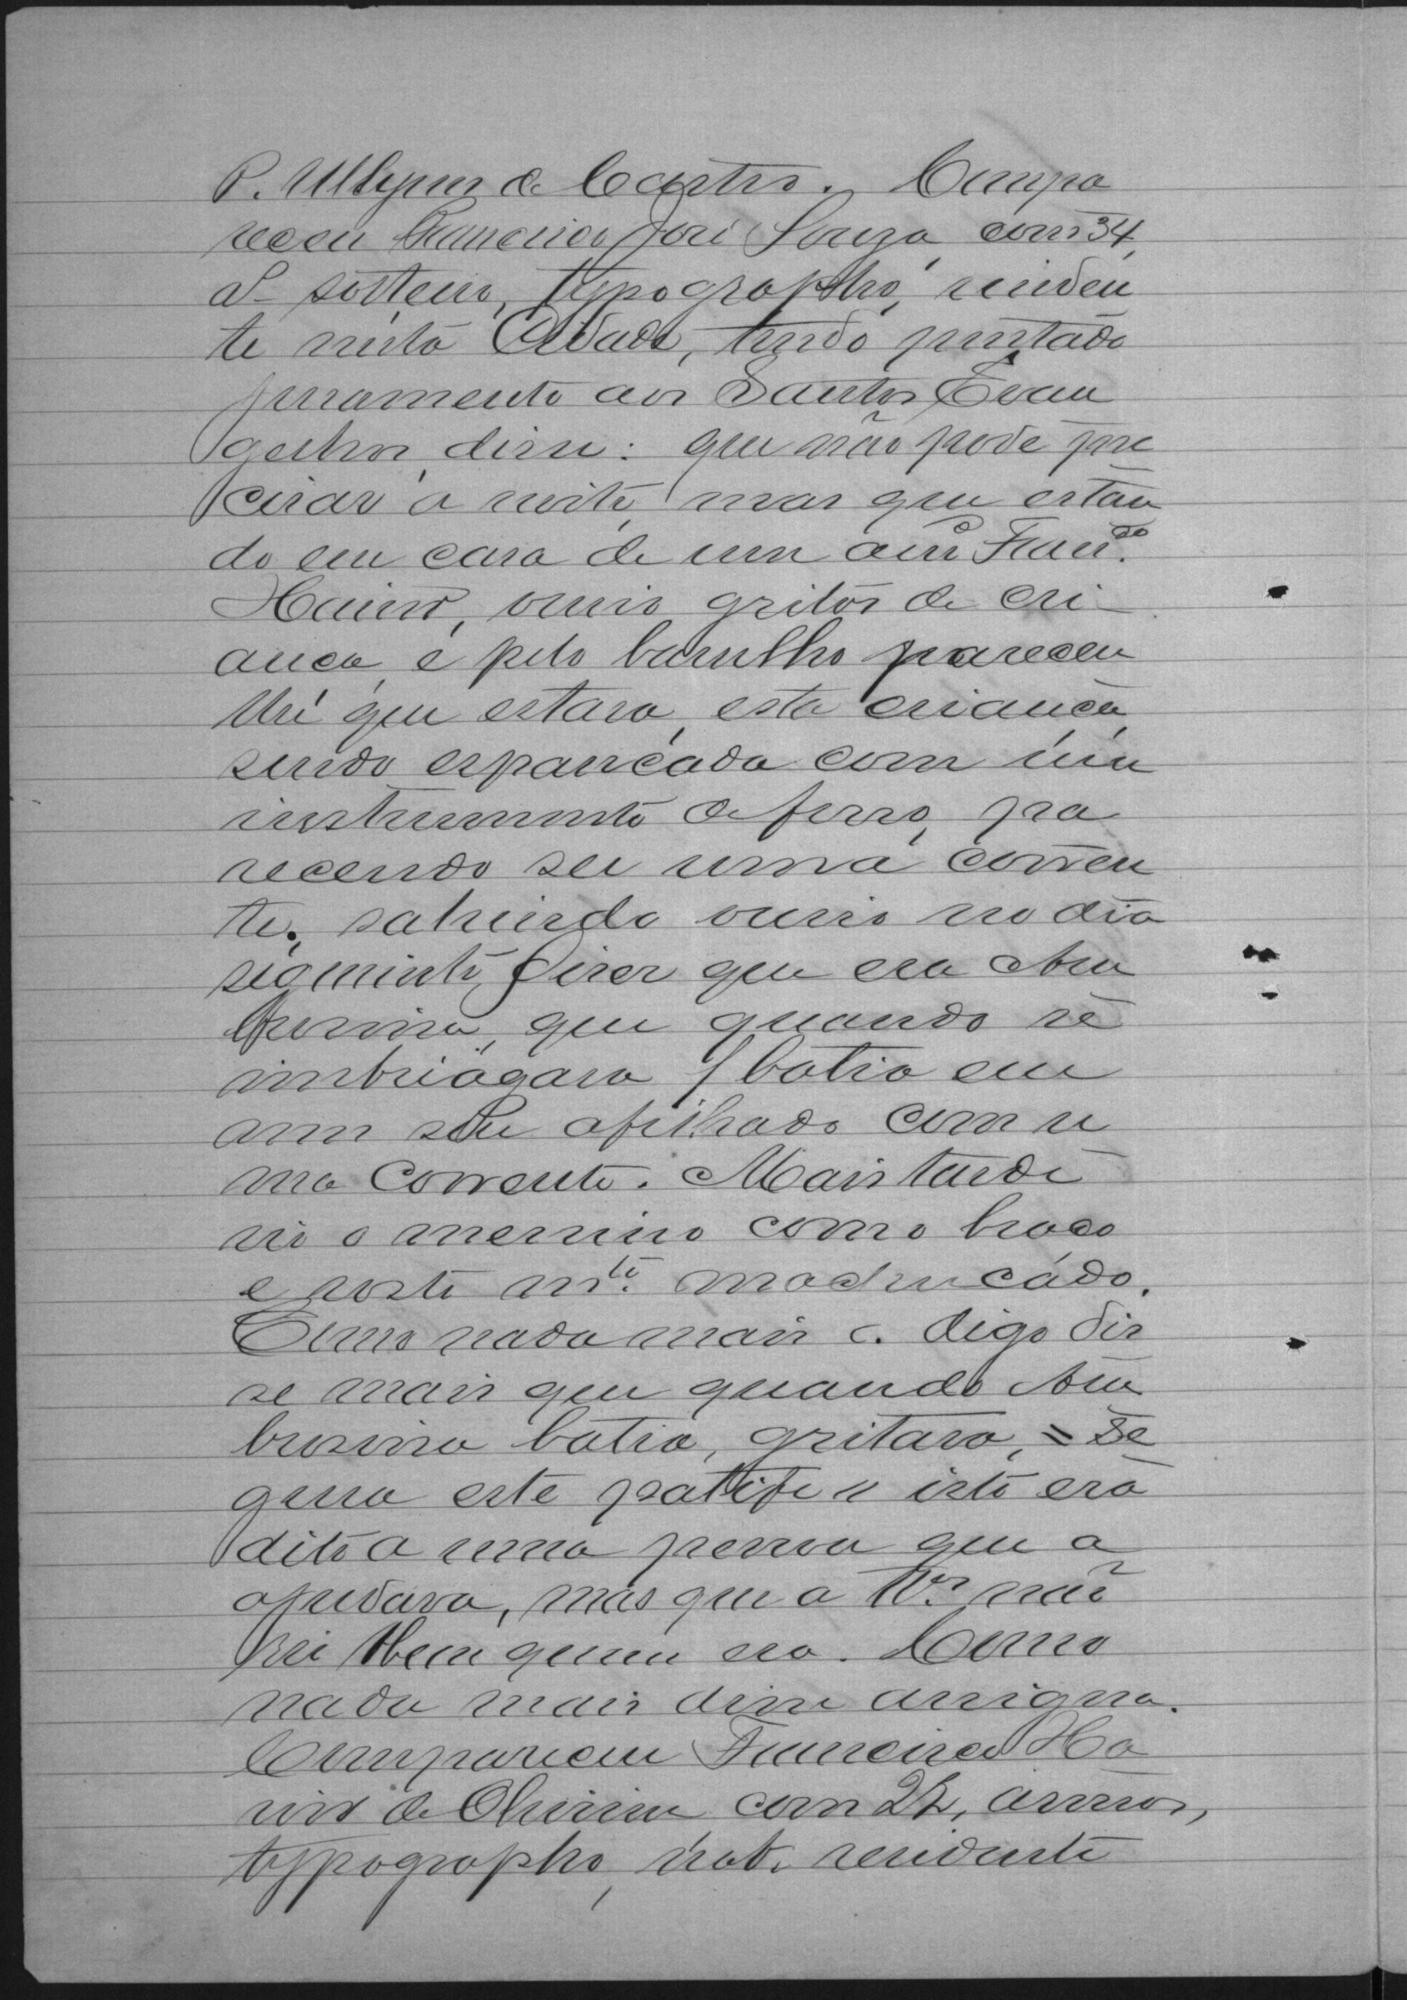 P. Ullysses de Castro. Compa
receu Francisco José Souza, com 34
a. solteiro, typographo, residen
te nesta Cidade, tendo prestado
juramento aos Santos Evan
gelhos, disse: que não pode pre
cisar a noite, mas que estan
do em casa de um amº Franco.
Xavier, ouvio gritos de cri
ança, e pelo barulho pareceu
lhe que estava, esta criança,
sendo espancada com um
instrumento de ferro, pa
recendo ser uma corren
te. sahindo ouvio no dia
seguinte, dizer que era Am
brosina, que quando se
imbriagava, batia em
um seu afilhado com u
ma corrente. Mais tarde
vio o menino com o braço
e rosto mto. machucado.
Como nada mais c. digo dis
se mais que quando Am
brosina batia, gritava, = Se
gura este patife " isto era
dito a uma pessoa que a
ajudava, mas que a Tª não
sei bem quem era. Como
nada mais disse assigna.
Compareceu Francisco Xa
vier de Oliveira com 22, annos,
typographo, nat. residente